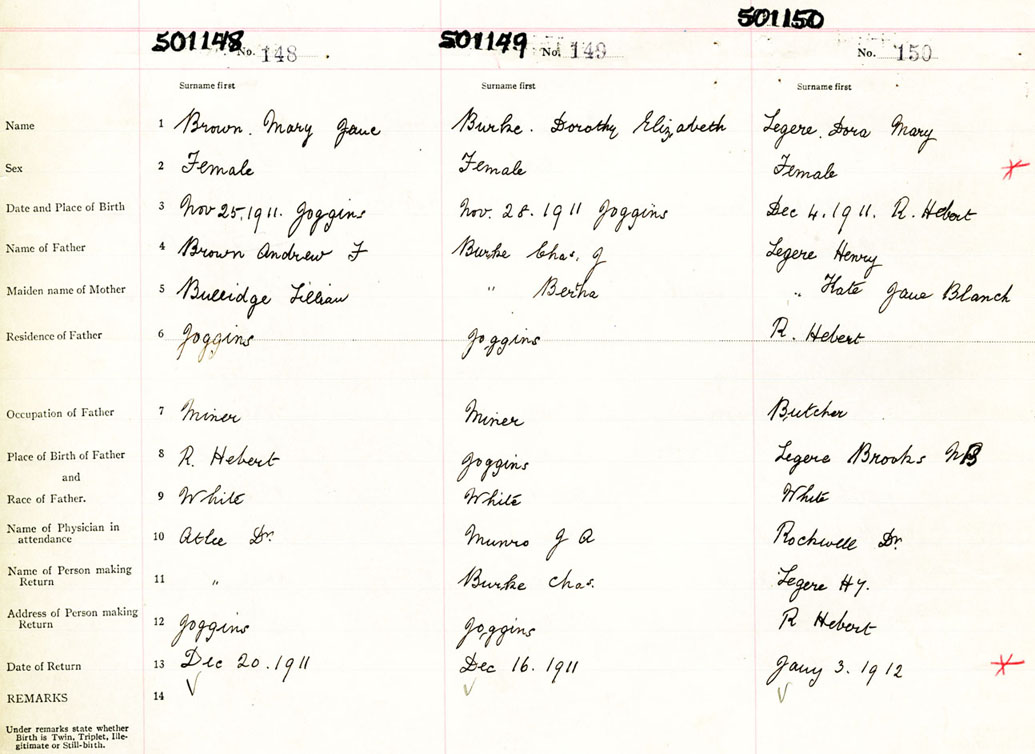 501148 501149 501150
No. 148 No. 149 No. 150
Surname first Surname first Surname first
Name 1 Brown. Mary Jane Burke. Dorothy Elizabeth Legere. Dora Mary
Sex 2 Female Female Female
Date and Place of Birth 3 Nov 25, 1911. Joggins Nov. 28. 1911 Joggins Dec 4. 1911. R. Hebert
Name of Father 4 Brown Andrew F Burke Chas. J Legere Henry
Maiden name of Mother 5 Bullidge Lillian " Bertha " Kate Jane Blanch
Residence of Father 6 Joggins Joggins R. Hebert
Occupation of Father 7 Miner Miner Butcher
Place of Birth of Father 8 R. Hebert Joggins Legere Brooks NB
and
Race of Father. 9 White White White
Name of Physician in
attendance 10 Atlee Dr. Munro J A Rockwell Dr.
Name of Person making
Return 11 " Burke Chas. Legere Hy.
Address of Person making
Return 12 Joggins Joggins R Hebert
Date of Return 13 Dec 20. 1911 Dec 16. 1911 Jany 3. 1912
REMARKS 14
Under remarks state whether
Birth is Twin, Triplet, Ille-
gitimate or Still-birth.